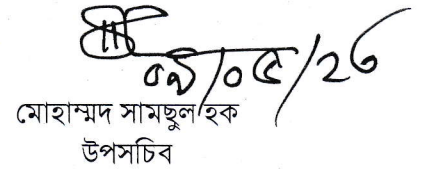 ০৯/০৫/২৬
মোহাম্মদ সামছুল হক
উপসচিব